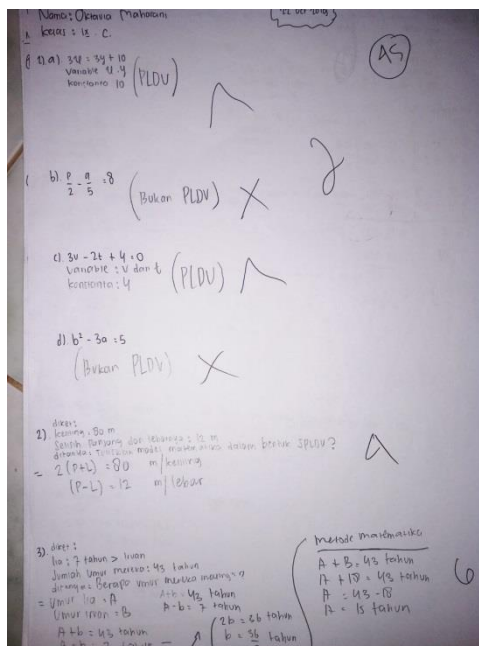 Nama: Oktavia Maharani
22 Oct 2019
Kelas : IX C.
AS
1) a). 3x = 3y + 10
variable x.y
konstanta 10
(PLDV)
b). p/2 - q/5 = 8
(Bukan PLDV)
c). 3v - 2t + 4 = 0
variable : v dan t
konstanta : 4
(PLDV)
d). b² - 3a = 5
(Bukan PLDV)
diket :
2). keliling = 80 m
Selisih panjang dan lebarnya : 12 m
ditanya : model matematika dalam bentuk SPLDV?
= 2 (P+L) = 80 m/keliling
(P-L) = 12 m/lebar
3). diket :
lia : 7 tahun > irvan
Jumlah umur mereka : 43 tahun
Berapa umur mereka
= Umur lia = A
Umur irvan = B
A+b = 43 tahun
A-b = 7 tahun
A + b = 43 tahun
2b = 36 tahun
b = 36 tahun
metode matematika
A + B = 43 tahun
A + 18 = 43 tahun
A = 43 - 18
A = 15 tahun
6